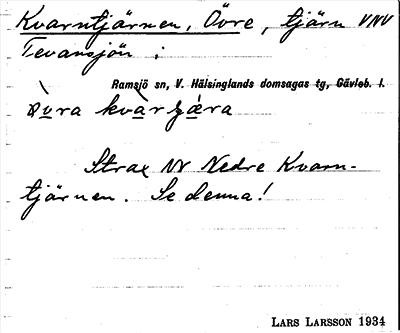 Kvarntjärnen, Övre, tjärn VNV
Tevansjön;
Ramsjö sn, V. Hälsinglands domsagas tg, Gävleb. l.
övra kvarɟæra
Strax NV Nedre Kvarn-
tjärnen. Se denna!
LARS LARSSON 1934